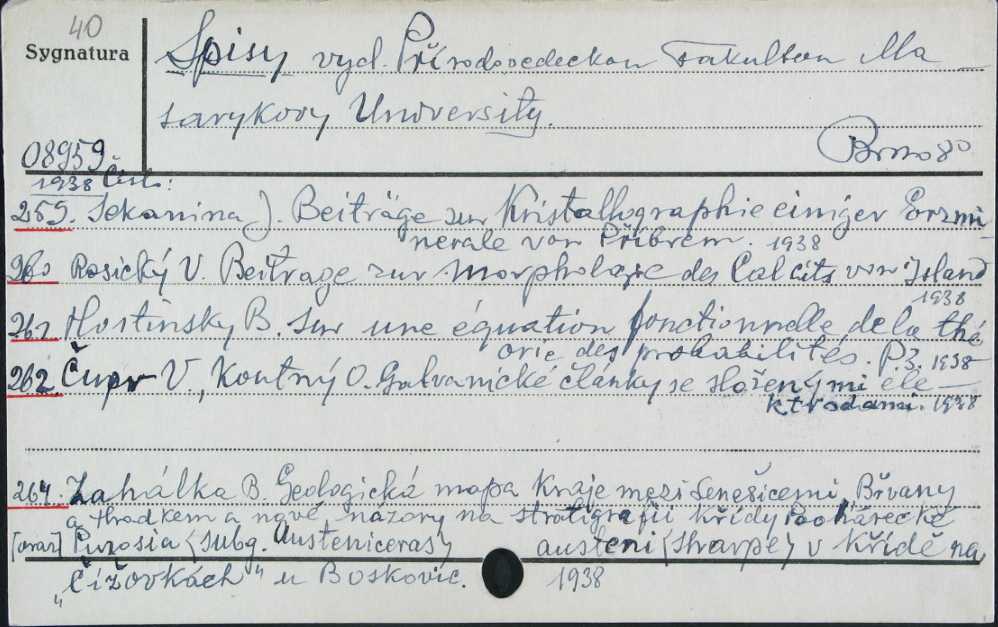 40
Sygnatura
Spisy vyd. Přírodovedeckou Fakultou Ma
sarykovy University.
08959. Brno 8°
1938 Čísl.:
259. Sekanina J. Beiträge zur Kristallographie einiger Erzmi-
nerale von Příbrem. 1938
260 Rosický V. Beitrage zur Morphologie des Calcits von Island
1938
261 Hostinsky B. Sur une équation fonctionnelle de la thé
orie des probabilités. P.3. 1938
262. Čupr V., Koutný O. Galvanické články se složenými ele-
ktrodami. 1938
264. Zahálka B. Geologická mapa Kraje mezi Lenešicemi, Břvany
a Hradkem a nové názory na stratigrafii křídy Poohárecké
[oraz] Puzosia (subg. Austeniceras) austeni (Sharpe) v křídě na
"Čižovkách" u Boskovic. 1938